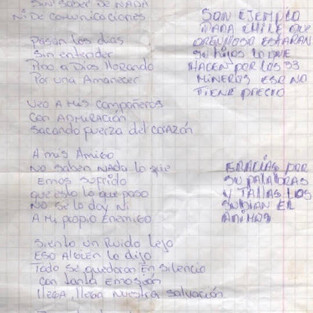 Sin saber de NADA
Ni De comunicaciones
Pasan los días
Sin entender
Pido a Dios llorando
Por una Amanecer
Veo A Mis compañeros
Con ADMiración
Sacando fuerza del corazón
A mis Amigo
No saben NADA lo que
Emos sufrido
que esto lo que paso
No se lo doy Ni
A Mi propio Enemigo
Siento un Ruido lejo
Eso Alguien lo dijo
Todo se quedaron En Silencio
con tanta emosión
llega, llega nuestra salvación
SON EJEMPLO
PARA CHILE QUE
ORGULLOSO ESTARAN
SU HIJOS LO QUE
HACEN POR LOS 33
MINEROS ESO NO
TIENE PRECIO
GRACIAS POR
SU PALABRAS
Y TALLAS NOS
SUBIAN EL
ANIMO